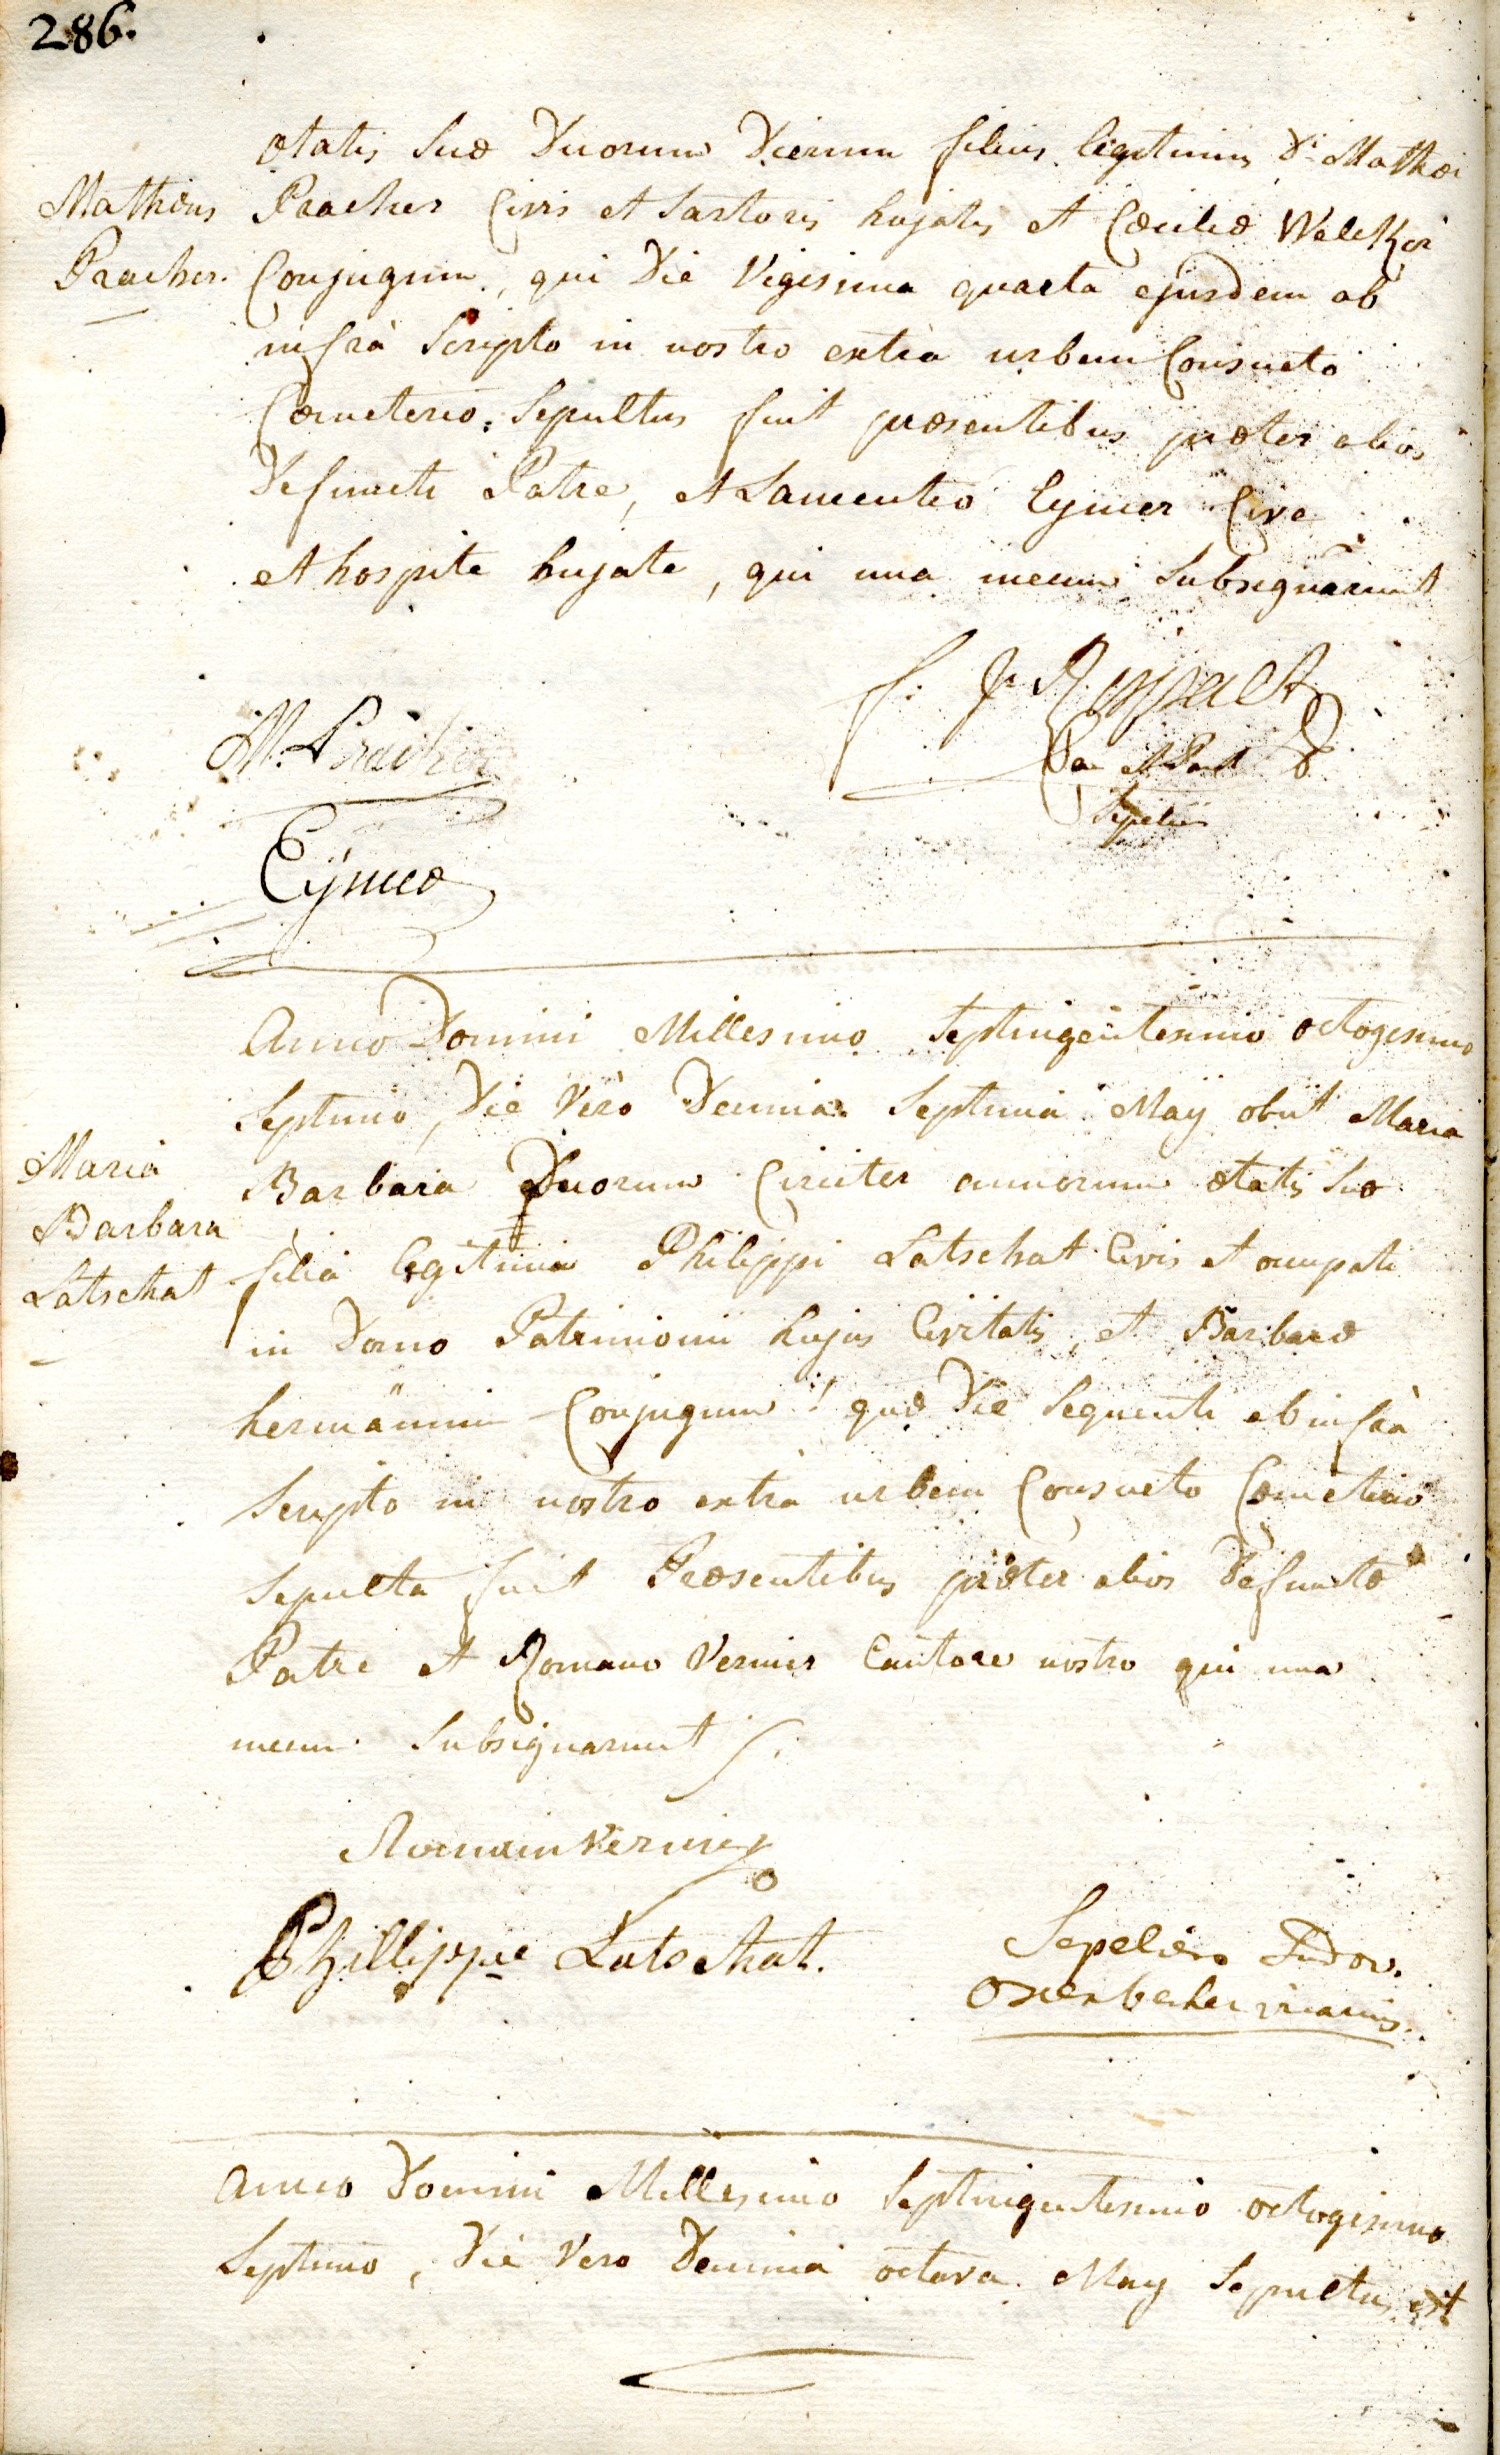 286.
ætatis suæ Duorum Dierum filius legitimus D. Mathæi
Mathæus
Pracher.
Pracher Civis et Sartoris hujatis et Cæciliæ Welcker
Conjugum, qui Die Vigesima quarta ejusdem ab
infrà Scripto in nostro extrà urbem Consueto
Cœmeterio Sepultus fuit præsentibus præter alios
Defuncti Patre, et Laurentio Eymer Cive
et hospite hujate, qui una mecum Subsignarunt
M. Pracher
Eymer
Sepelier
Anno Domini Millesimo Septingentesimo octogesimo
Septimo, Die Verò Decima Septima May obiit Maria
Maria
Barbara
Latschat
Barbara Duorum Circiter annorum ætatis Suæ
filia legitima Philippi Latschat Civis et occupati
in Domo Patrimonii hujus Civitatis, et Barbaræ
hermännin Conjugum! quæ Die Sequenti ab infrà
Scripto in nostro extrà urbem Consueto Cœmeterio
Sepulta fuit Præsentibus præter alios Defunctæ
Patre et Romano Vernier Cantore nostro qui una
mecum Subsignarunt
Romain Vernier
Phillippe Latschat.
Sepeliere
vicarius.
Anno Domini Millesimo Septingentesimo octogesimo
Septimo, Die Vero Decima octava May Sepultus est